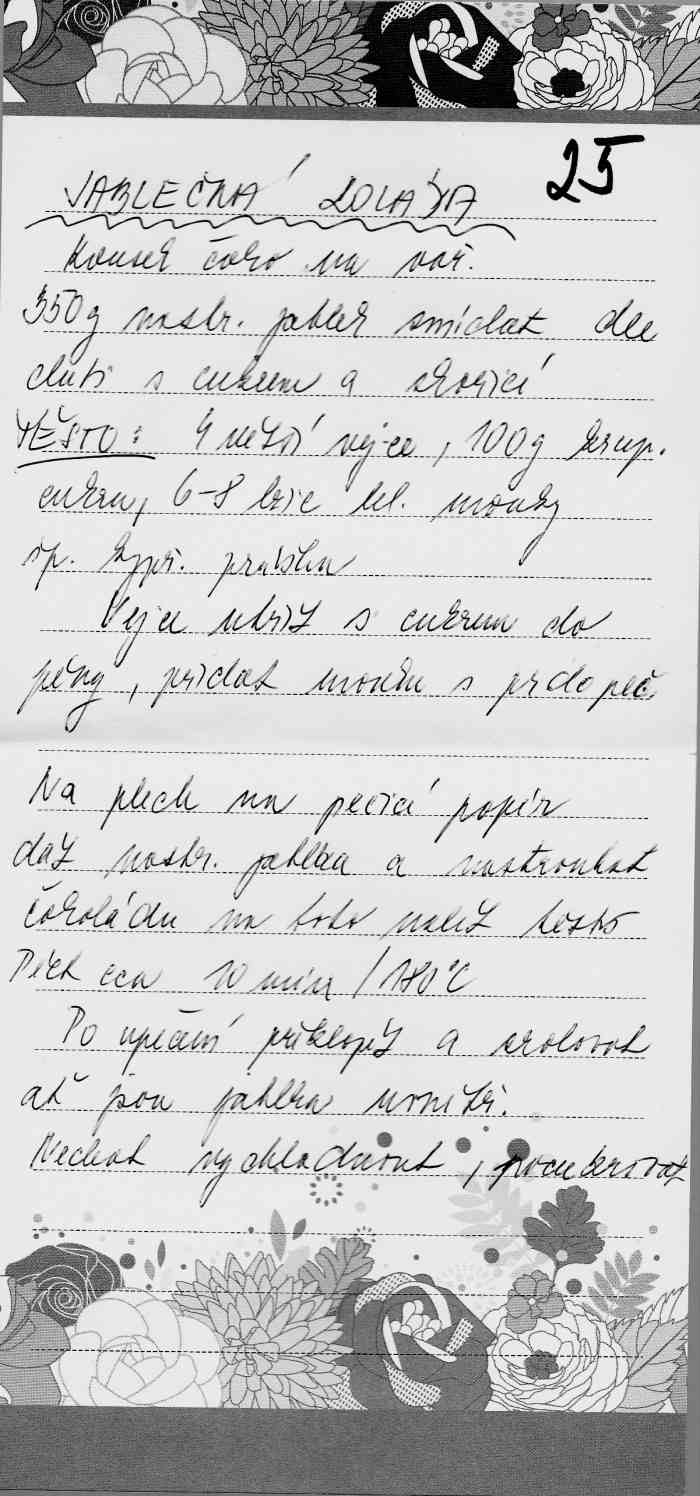 25
JABLEČNÁ ROLÁDA
Kousek čoko na vař.
350g nastr. jablek smíchat dle
chuti s cukrem a skořicí
TĚSTO: 4 větší vejce, 100g krup.
cukru, 6-8 lžic hl. mouky
šp. kypř. prášku
Vejce utřít s cukrem do
pěny, přidat mouku s prdopeč.
Na plech na pečící papír
dát nastr. jablka a nastrouhat
čokoládu na toto nalít těsto
Péct cca 10 min / 180°C
Po upečení přiklopit a srolovat
ať jsou jablka uvnitř.
Nechat vychladnout, pocukrovat